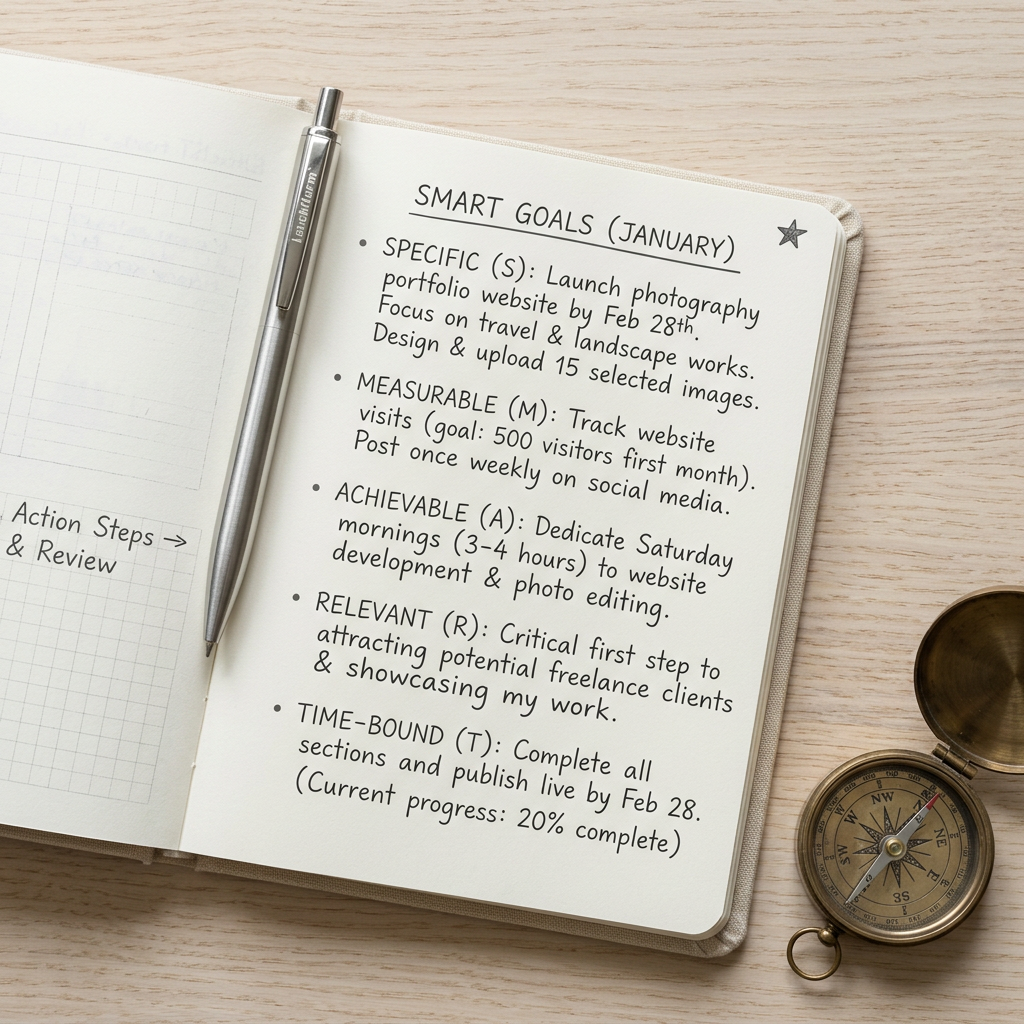 Action Steps →
& Review
SMART GOALS (JANUARY)
• SPECIFIC (S): Launch photography
portfolio website by Feb 28th.
Focus on travel & landscape works.
Design & upload 15 selected images.
• MEASURABLE (M): Track website
visits (goal: 500 visitors first month).
Post once weekly on social media.
• ACHIEVABLE (A): Dedicate Saturday
mornings (3-4 hours) to website
development & photo editing.
• RELEVANT (R): Critical first step to
attracting potential freelance clients
& showcasing my work.
• TIME-BOUND (T): Complete all
sections and publish live by Feb 28.
(Current progress: 20% complete)
NW
W
SW
N
NE
E
SS